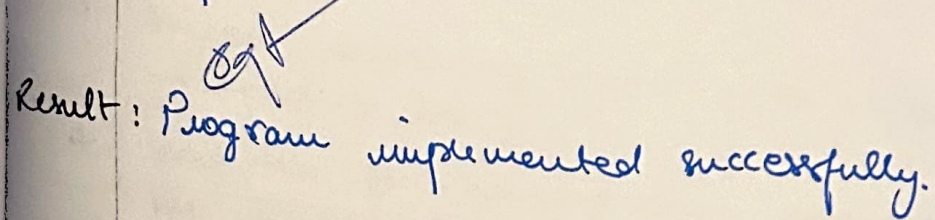 Result: Program implemented successfully.